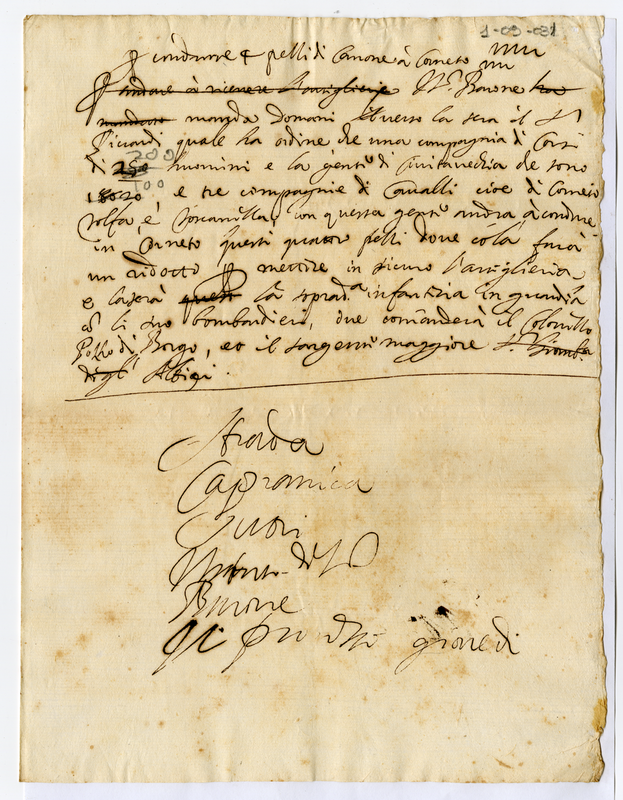 1-09-031
condurre 4 pelli di Canone à Corneto
andare à ricevere l'artiglieria Barone ha
mandato manda domani verso la sera il
Piccardi quale ha ordine de una compagnia di Corsi
di 250 200 huomini e la gente di Civitavechia che sono
100 e tre compagnie di Cavalli cioe di Corneto
Tolfa, e Toscanella, con questa gente andrà à condure
in Corneto questi quattro pelli dove colà farà
un ridotto mettere in sicuro l'artiglieria
e lasserà questi la soprad.a infanteria in guardia
li suo bombardieri, che comanderà il Colonello
Pozzo di Borgo, et il sargente maggiore
degl' Albizi.
Strada
Capranica
Sutri
Monte
Barone
giovedi